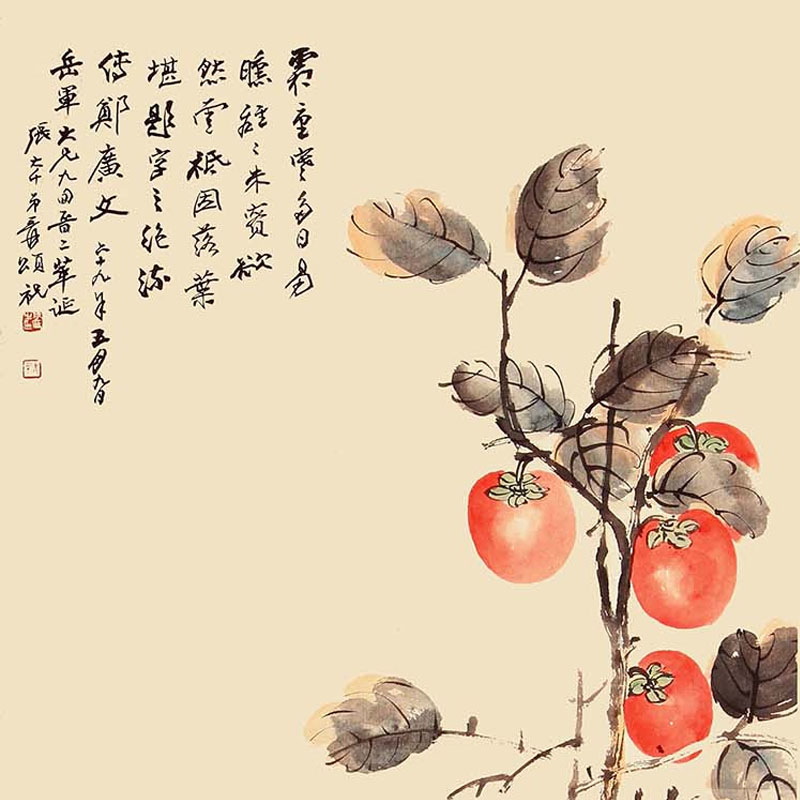 霜重寒多日易
曛離〻朱實欲
然雲祗因落葉
堪題字三絕流
傳鄭廣文 六十九年五月九日
岳軍大兄九旬晉二華誕
張大千弟爰頌祝